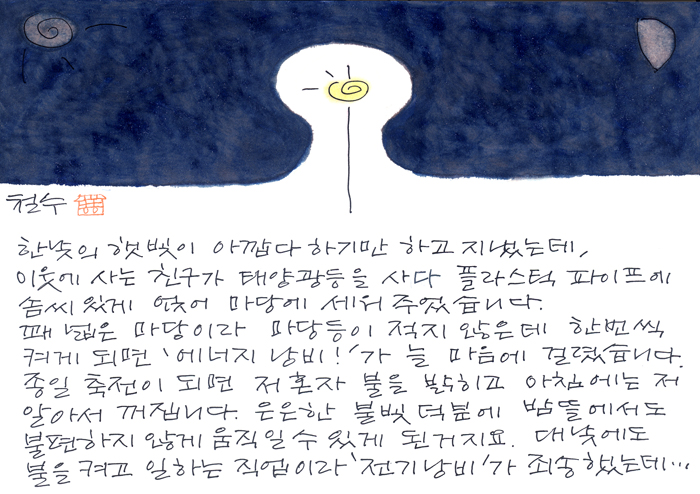 철수
한낮의 햇빛이 아깝다 하기만 하고 지냈는데,
이웃에 사는 친구가 태양광등을 사다 플라스틱 파이프에
솜씨있게 얹어 마당에 세워 주었습니다.
꽤 넓은 마당이라 마당등이 적지 않은데 한번씩
켜게 되면 '에너지 낭비!'가 늘 마음에 걸렸습니다.
종일 축전이 되면 저 혼자 불을 밝히고 아침에는 저
알아서 꺼집니다. 은은한 불빛 덕분에 밤뜰에서도
불편하지 않게 움직일 수 있게 된거지요. 대낮에도
불을 켜고 일하는 직업이라 '전기낭비'가 죄송했는데...